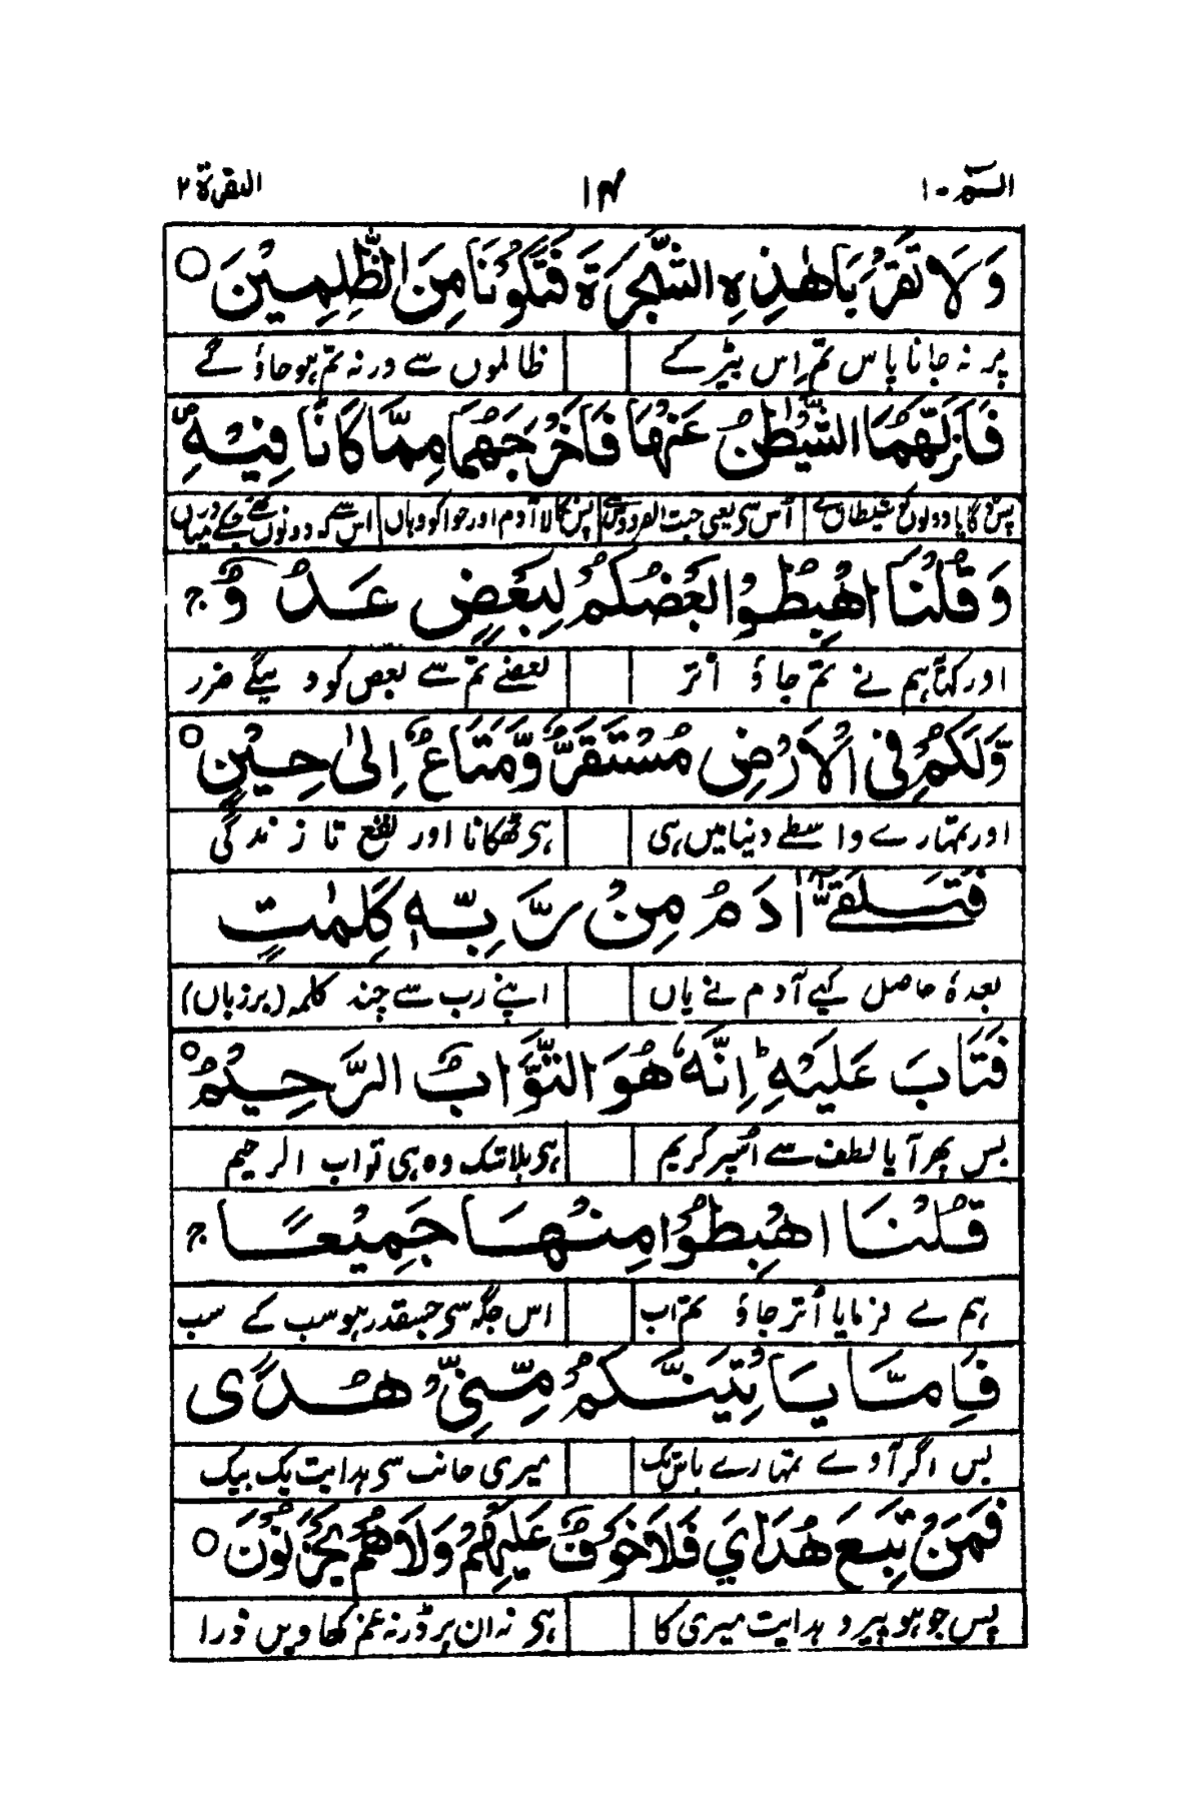 الٓمّٓ - ۱ ۱۴ البقرة ۲
وَلَا تَقْرَبَا هٰذِهِ الشَّجَرَةَ فَتَكُوْنَا مِنَ الظّٰلِمِيْنَ ○
پر نہ جانا پاس تم اِس پیڑ کے ظالموں سے ورنہ تم ہو جاؤ گے
فَاَزَلَّهُمَا الشَّيْطٰنُ عَنْهَا فَاَخْرَجَهُمَا مِمَّا كَانَا فِيْهِ ۠
پس دونوں کو شیطان نے اُس سے یعنی جنت الفردوس سے پس نکالا آدم اور حوا کو وہاں اس سے کہ دونوں تھے جسکے درمیاں
وَقُلْنَا اهْبِطُوْا بَعْضُكُمْ لِبَعْضٍ عَدُوٌّ ۚ
اور کہا ہم نے تم جاؤ اُتر بعضے تم سے بعض کو دیگے ضرر
وَلَكُمْ فِى الْاَرْضِ مُسْتَقَرٌّ وَّمَتَاعٌ اِلٰى حِيْنٍ ○
اور تمہارے واسطے دنیا میں ہی ہی ٹھکانا اور نفع تا زندگی
فَتَلَقّٰٓى اٰدَمُ مِنْ رَّبِّهٖ كَلِمٰتٍ
بعدہٗ حاصل کیے آدم نے یاں اپنے رب سے چند کلمہ (بر زباں)
فَتَابَ عَلَيْهِ ؕ اِنَّهٗ هُوَ التَّوَّابُ الرَّحِيْمُ ○
پس پھر آیا لطف سے اُسپر کریم ہی بلاشک وہ ہی تواب الرحیم
قُلْنَا اهْبِطُوْا مِنْهَا جَمِيْعًا ۚ
ہم نے فرمایا اُتر جاؤ تم اب اس جگہ سے جسقدر ہو سب کے سب
فَاِمَّا يَاْتِيَنَّكُمْ مِّنِّىْ هُدًى
پس اگر آوے تمہارے پاس تک میری جانب سے ہدایت یک بیک
فَمَنْ تَبِعَ هُدَاىَ فَلَا خَوْفٌ عَلَيْهِمْ وَلَا هُمْ يَحْزَنُوْنَ ○
پس جو ہو پیرو ہدایت میری کا ہی نہ ان پر ڈر نہ غم کھاویں ذرا